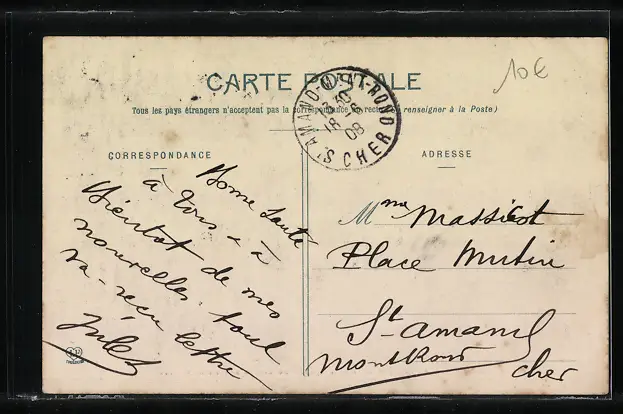 10€
CARTE POSTALE
Tous les pays étrangers n'acceptent pas la correspondance au recto (se renseigner à la Poste)
ST AMAND-MONT-ROND
18
08
CHER
CORRESPONDANCE
ADRESSE
Bonne santé
à tous & à
Bientot de mes
nouvelles. tout
va - reçu lettre
Jules
Mme Massicot
Place Mutin
St Amand
Montrond
Cher